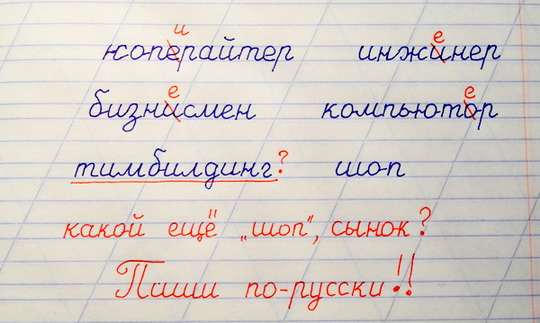 и е
коперайтер инжинер
е е
бизнасмен компьютор
тимбилдинг? шоп
какой ещё „шоп“, сынок?
Пиши по-русски!!